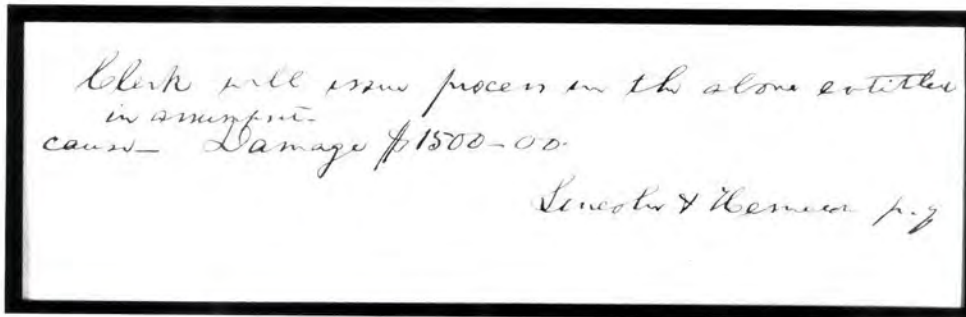 Clerk will issue process in the above entitled
in assumpsit-
cause- Damage $1500-00.
Lincoln & Herndon p. q